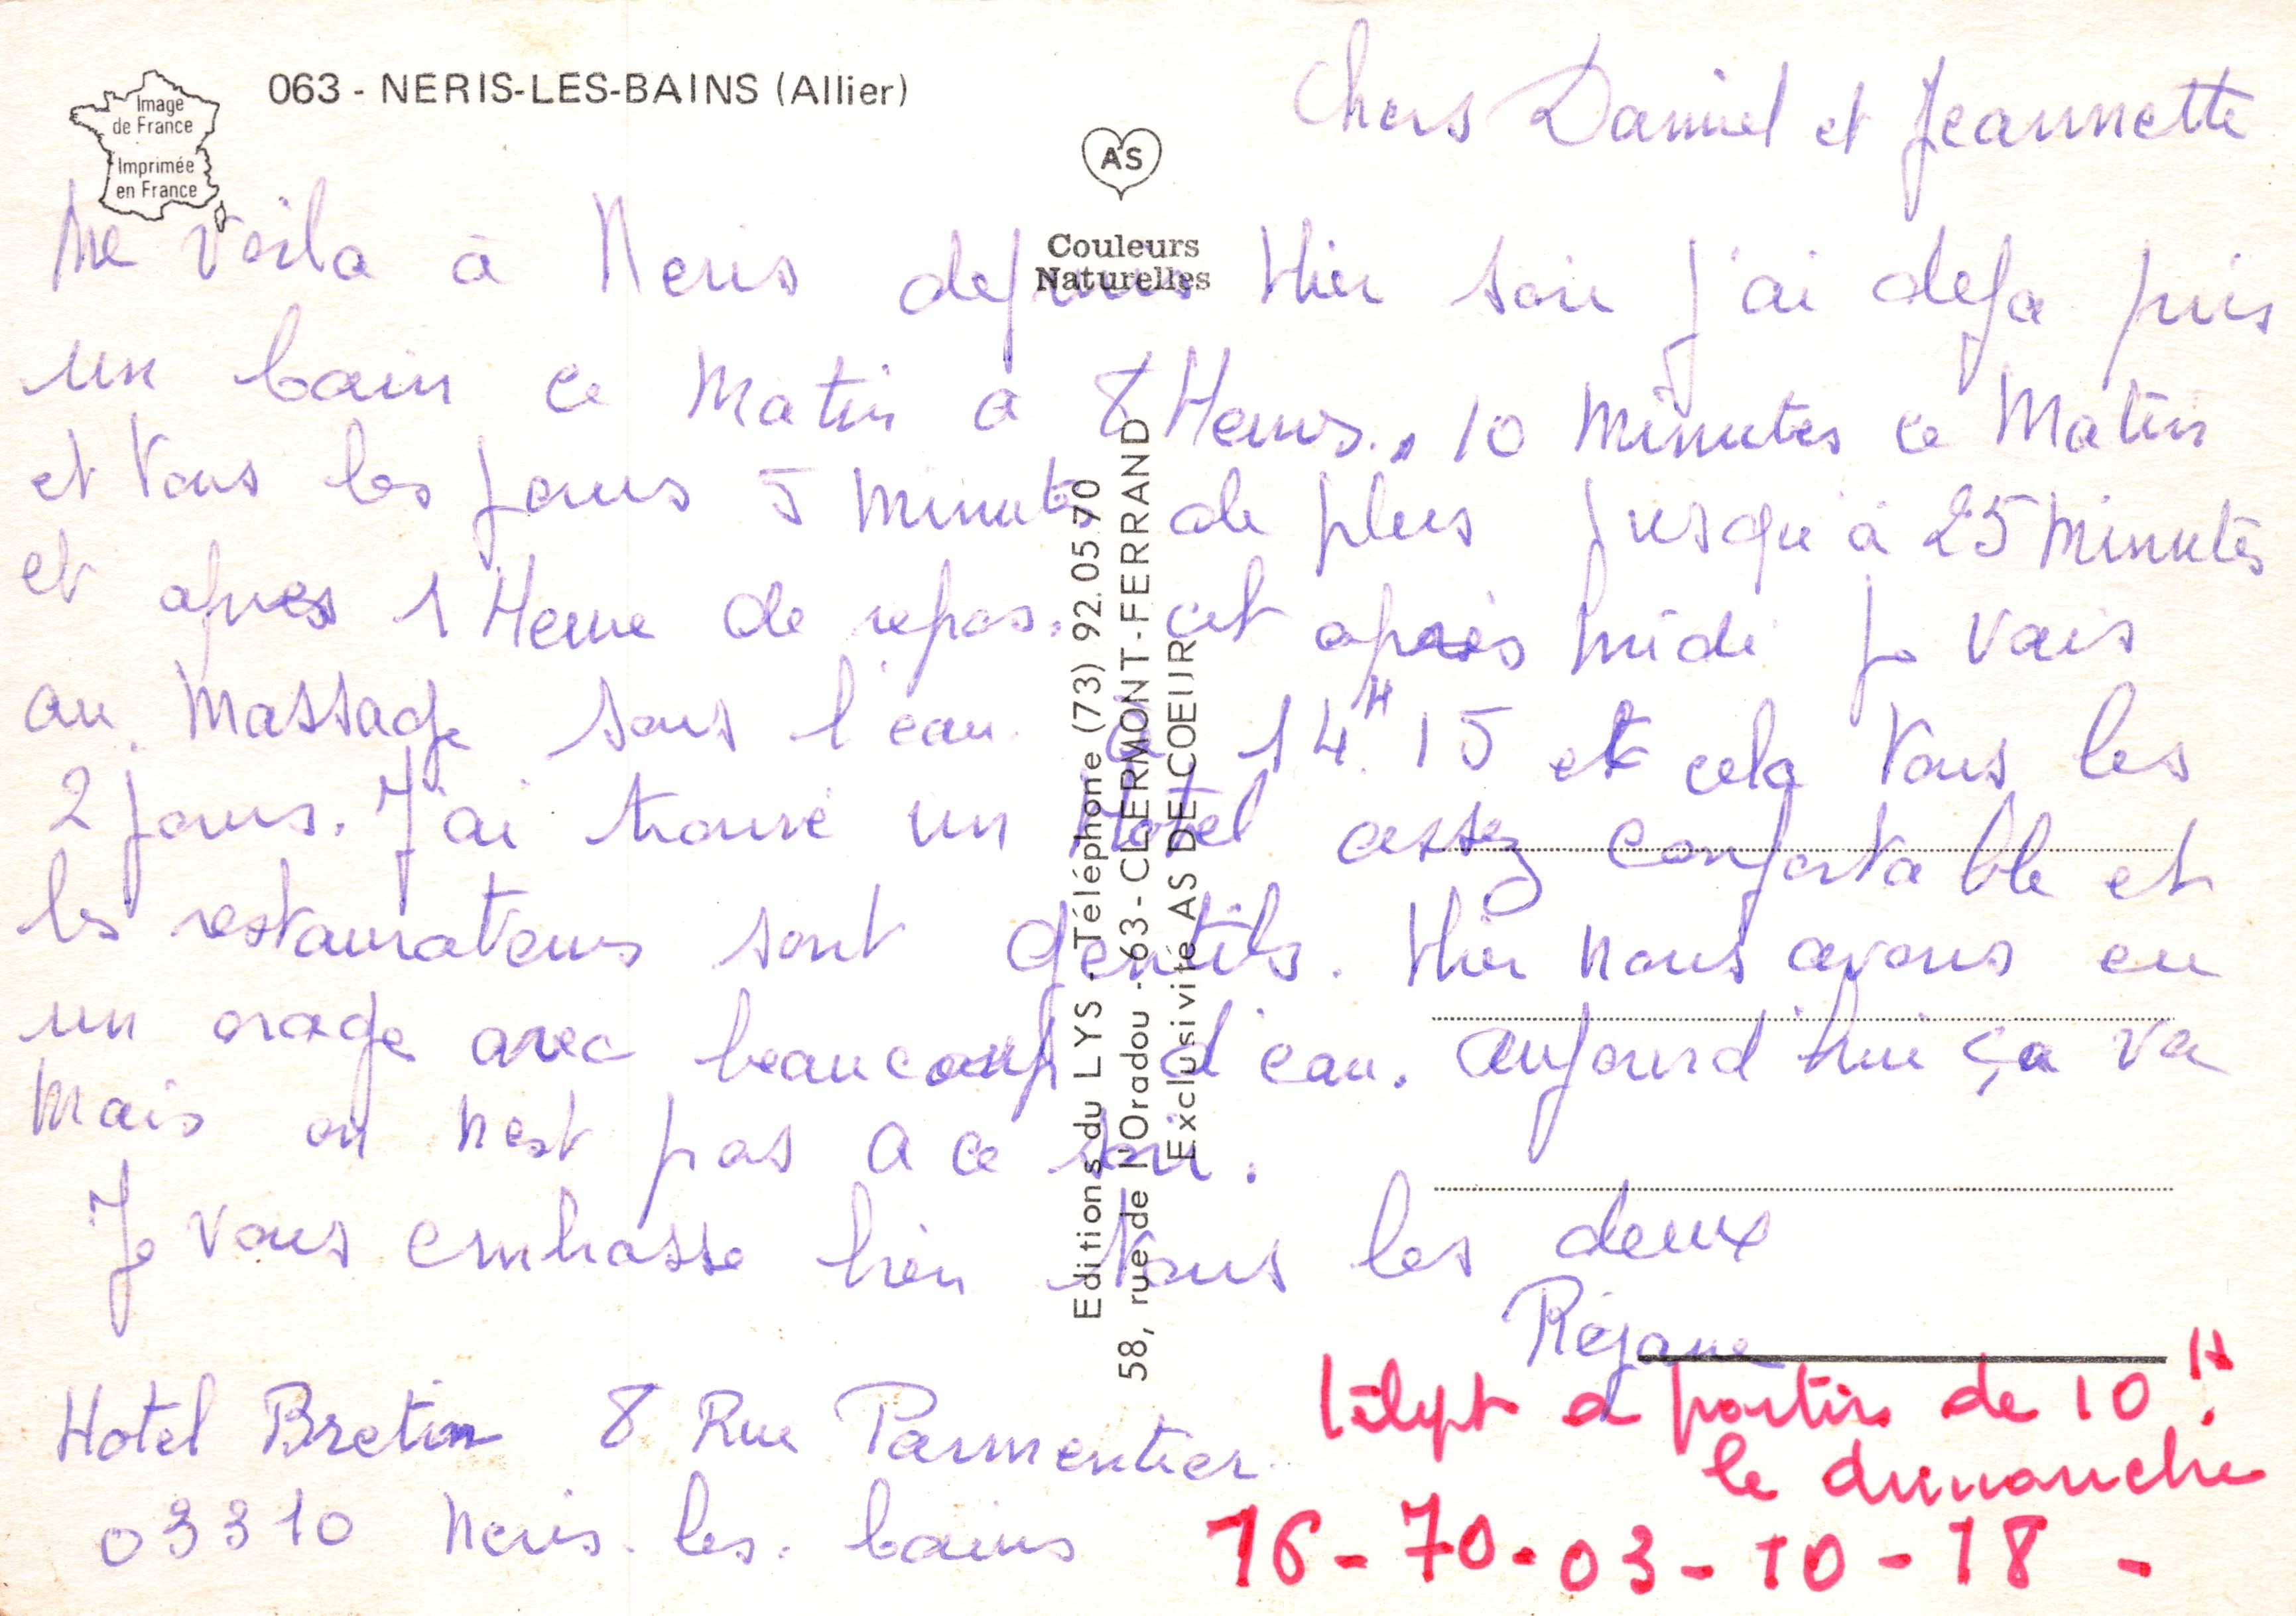 063 - NERIS-LES-BAINS (Allier)
Image
de France
Imprimée
en France
AS
Couleurs
Naturelles
Chers Daniel et Jeannette
Me voila à Neris depuis Hier soir j'ai deja pris
un bain ce Matin a 8 Heures., 10 Minutes ce Matin
et tous les jours 5 Minutes de plus jusqu'à 25 Minutes
et apres 1 Heure de repos. cet après Midi je vais
au Massage sous l'eau a 14H15 et cela tous les
2 jours. J'ai trouvé un Hotel assez confortable et
les restaurateurs sont gentils. Hier nous avons eu
un orage avec beaucoup d'eau. aujourd'hui ça va
Mais on nest pas a ce soir.
Je vous embrasse bien tous les deux
Réjane
Hotel Bretin 8 Rue Parmentier
03310 Neris-les-bains
a partir de 10H.
le dimanche
16-70-03-10-18-
Editions du LYS - Téléphone (73) 92.05.70
58, rue de l'Oradou - 63 - CLERMONT-FERRAND
Exclusivité AS DE COEUR